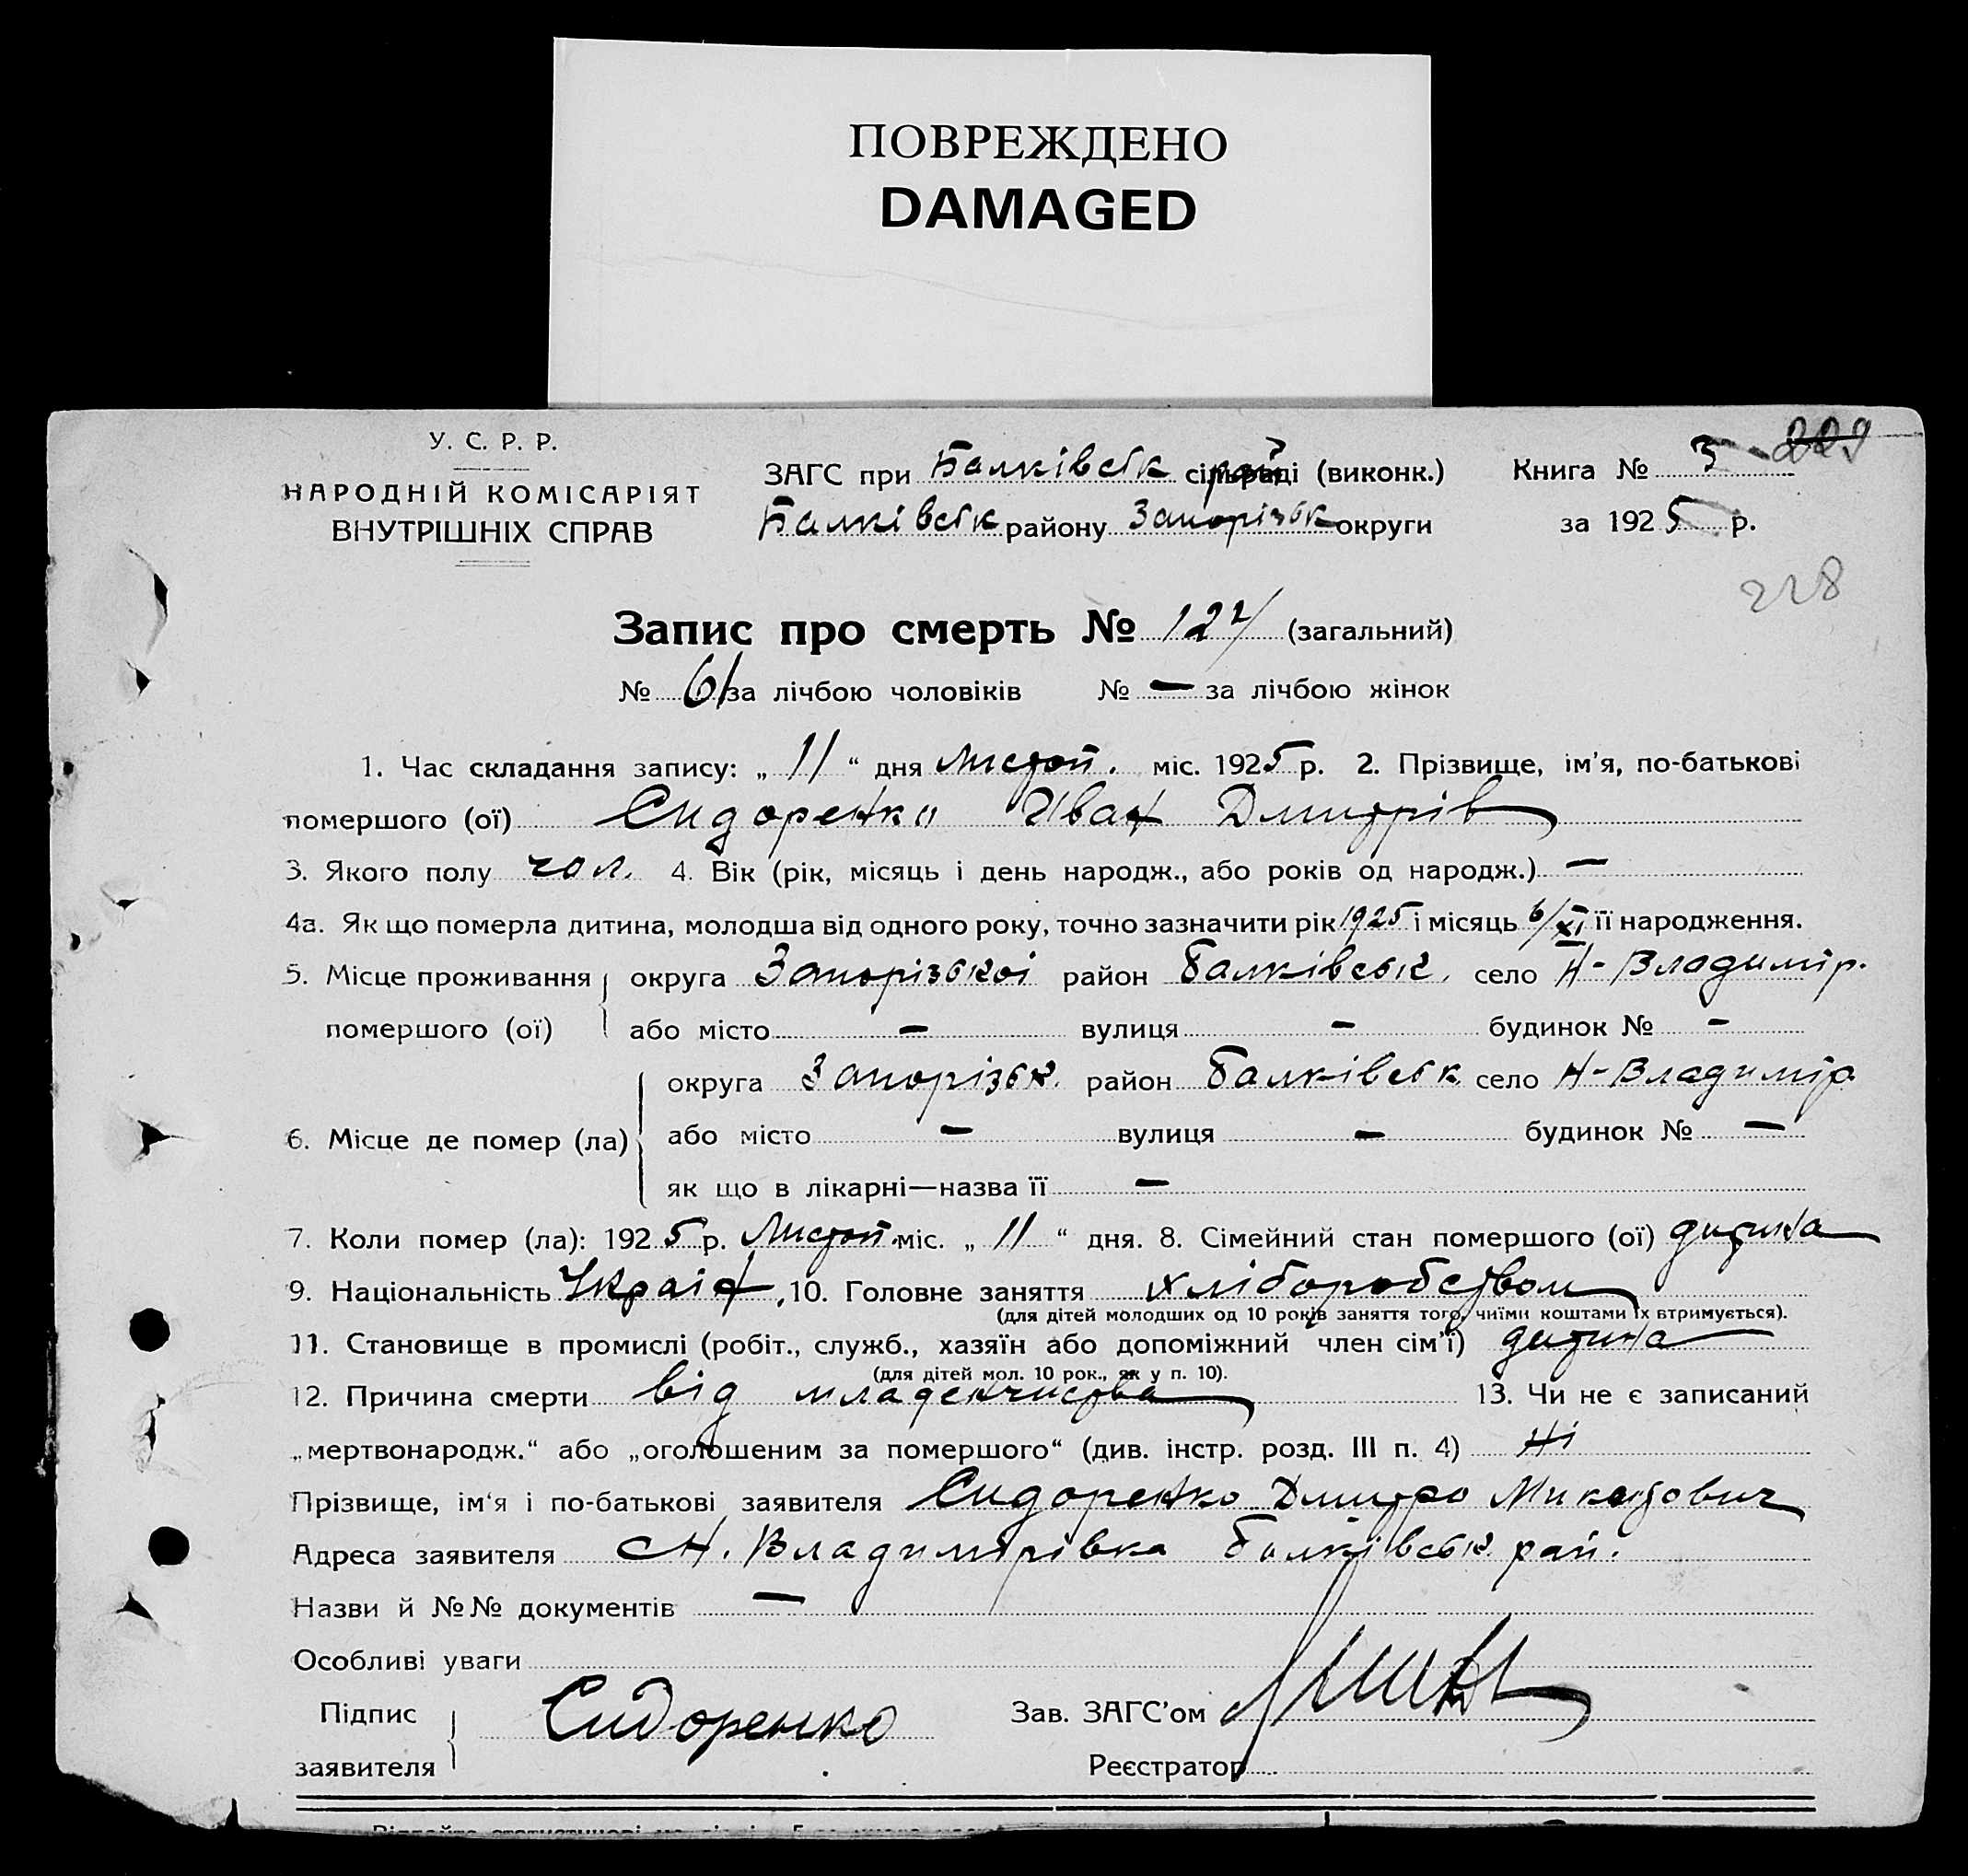 ПОВРЕЖДЕНО
DAMAGED
229
У. С. Р. Р.
НАРОДНІЙ КОМІСАРІЯТ
ВНУТРІШНІХ СПРАВ
ЗАГС при Балківськ рай сільраді (виконк.) Книга № 3
Балківськ району Запорізьк округи за 1925 р.
228
Запис про смерть № 127 (загальний)
№ 61 за лічбою чоловіків № — за лічбою жінок
1. Час складання запису: „ 11 “ дня Листоп. міс. 1925 р. 2. Прізвище, ім’я, по-батькові
помершого (ої) Сидоренко Иван Дмитрів
3. Якого полу чол. 4. Вік (рік, місяць і день народж., або років од народж.) —
4а. Як що померла дитина, молодша від одного року, точно зазначити рік 1925 і місяць 6/XI її народження.
5. Місце проживання округа Запорізькоі район Балківськ. село Н-Владимір.
помершого (ої) або місто — вулиця — будинок № —
округа Запорізьк. район Балківськ. село Н-Владимір
6. Місце де помер (ла) або місто — вулиця — будинок № —
як що в лікарні—назва її —
7. Коли помер (ла): 1925 р. Листоп. міс. „ 11 “ дня. 8. Сімейний стан помершого (ої) дитина
9. Національність Украін, 10. Головне заняття хліборобством
(для дітей молодших од 10 років заняття того, чиїми коштами їх втримується).
11. Становище в промислі (робіт., служб., хазяїн або допоміжний член сім’ї) дитина
(для дітей мол. 10 рок., як у п. 10).
12. Причина смерти від младенчиства 13. Чи не є записаний
„мертвонародж.“ або „оголошеним за помершого“ (див. інстр. розд. III п. 4) Ні
Прізвище, ім‘я і по-батькові заявителя Сидоренко Дмитро Микитович
Адреса заявителя с Н. Владимірівка Балківськ. рай.
Назви й №№ документів —
Особливі уваги
Підпис
заявителя Сидоренко
Зав. ЗАГС’ом
Реєстратор